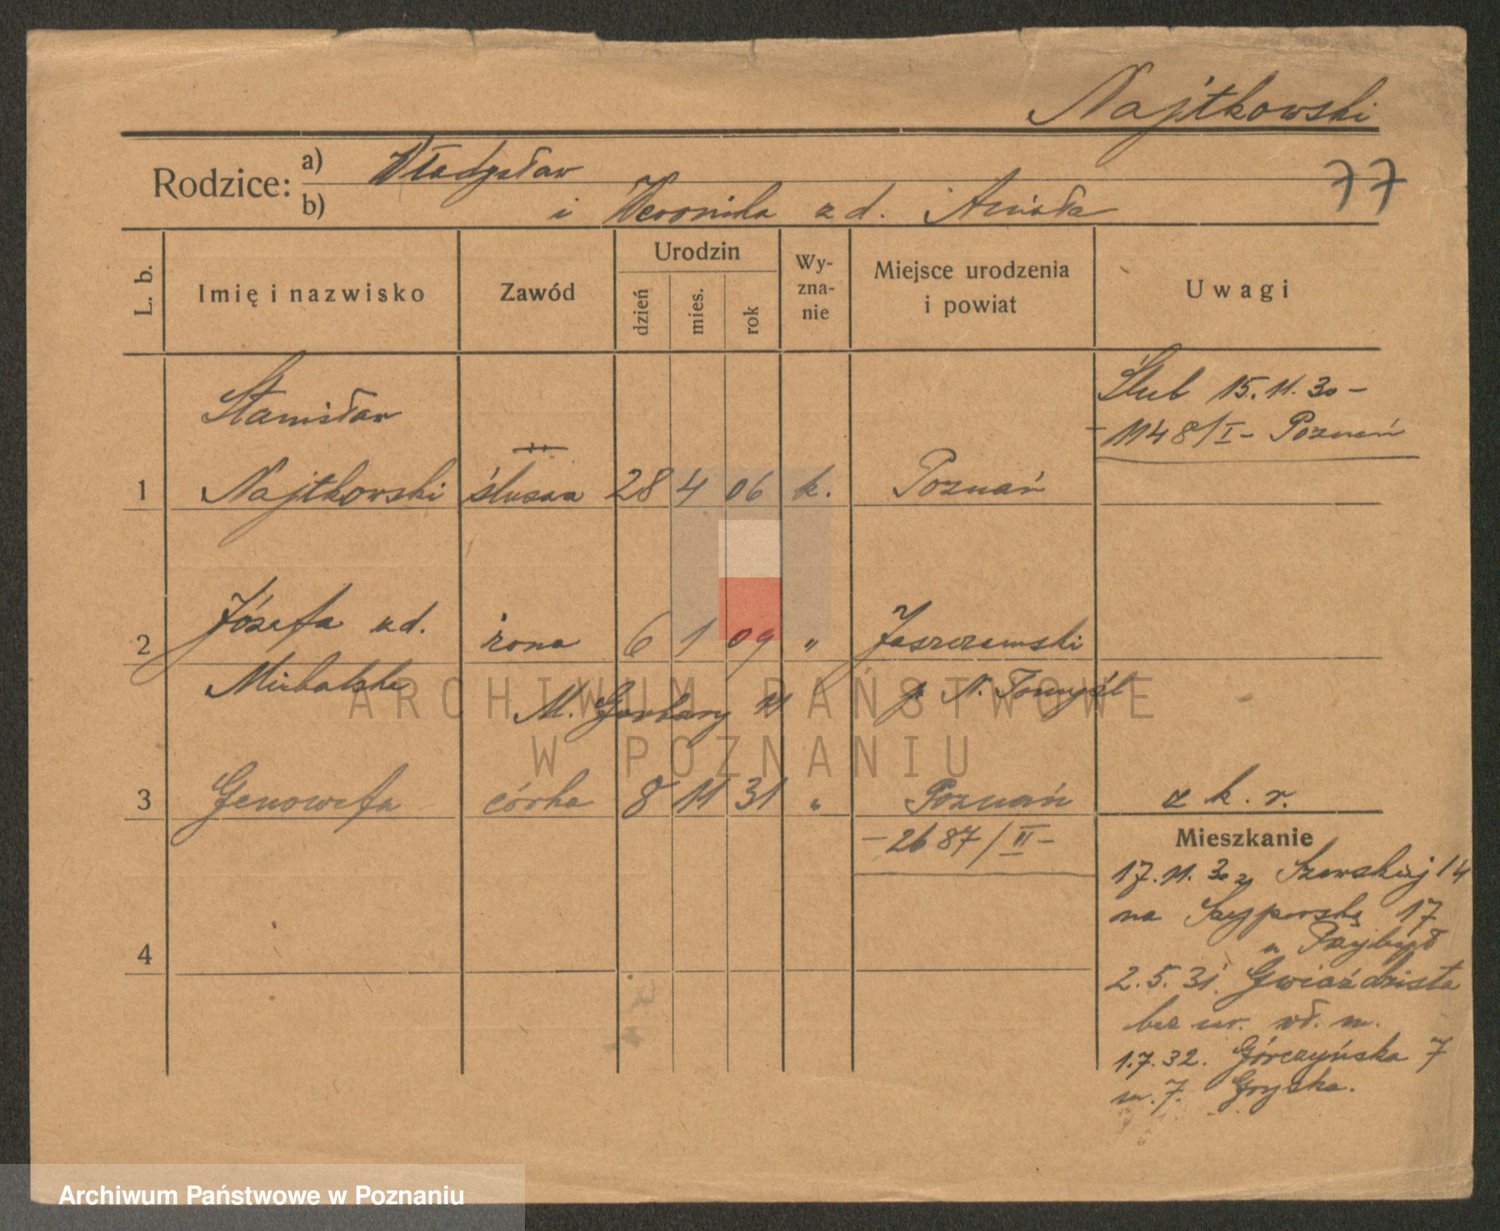 Najtkowski
77
Rodzice: a) Władysław
b) i Weronika z d. Anioła
L. b.
Imię i nazwisko
Zawód
Urodzin
dzień
mies.
rok
Wy-
zna-
nie
Miejsce urodzenia
i powiat
Uwagi
Stanisław
Ślub 15.11.30 –
– 1148/I – Poznań
1 Najtkowski ślusarz 28 4 06 k. Poznań
2 Józefa z d. żona 6 1 09 „
Michalska
M. Garbary p. N. Tomyśl
ARCHIWUM PAŃSTWOWE
W POZNANIU
3 Genowefa córka 8 11 31 „ Poznań z k. r.
– 2687/II –
Mieszkanie
17.11.30 z Szewskiej 14
na Szyperską 17
u Przybył
4
2.5.31. Gwiaździsta
bez nr. wł. m.
1.7.32. Górczyńska 7
m. 7. Gryska.
Archiwum Państwowe w Poznaniu